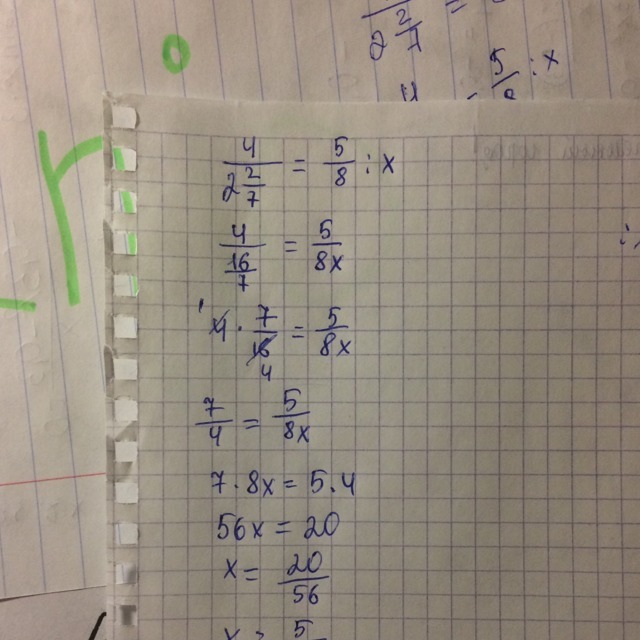 2 2/7 =
5/8 : x
4/(2 2/7) = 5/8 : x
4/(16/7) = 5/(8x)
1 4 · 7/16 4 = 5/(8x)
7/4 = 5/(8x)
7 · 8x = 5 · 4
56x = 20
x = 20/56
x = 5